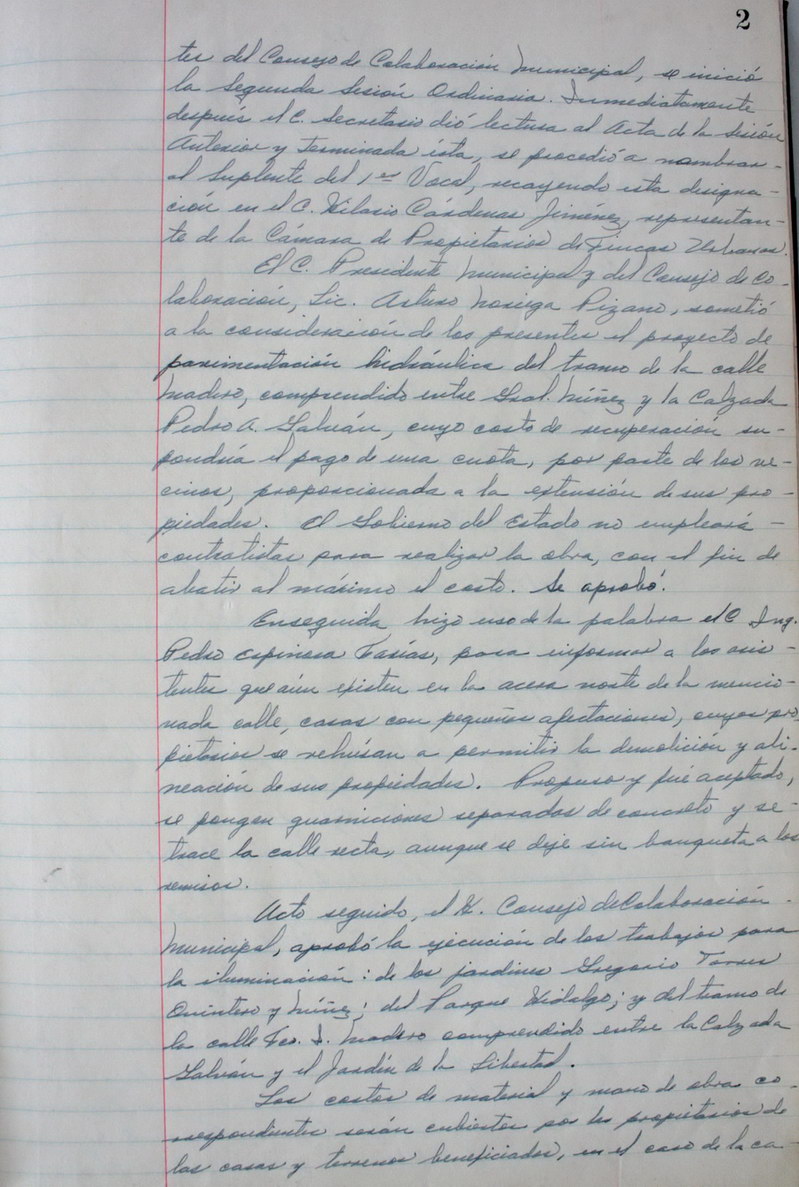 2
tes del Consejo de Colaboración Municipal, se inició
la Segunda Sesión Ordinaria. Inmediatamente
después el C. Secretario dió lectura al Acta de la Sesión
Anterior y terminada ésta, se procedió a nombrar
al Suplente del 1er Vocal, recayendo esta designa-
ción en el C. Hilario Cárdenas Jiménez, representan-
te de la Cámara de Propietarios de Fincas Urbanas.
El C. Presidente Municipal y del Consejo de Co-
laboración, Lic. Arturo Noriega Pizano, sometió
a la consideración de los presentes el proyecto de
pavimentación hidráulica del tramo de la calle
Madero, comprendido entre Gral. Núñez y la Calzada
Pedro A. Galván, cuyo costo de recuperación su-
pondría el pago de una cuota, por parte de los ve-
cinos, proporcionada a la extensión de sus pro-
piedades. El Gobierno del Estado no empleará -
contratistas para realizar la obra, con el fin de
abatir al máximo el costo. Se aprobó.
Enseguida hizo uso de la palabra el C Ing.
Pedro Espinosa Farías, para informar a los asis-
tentes que aún existen en la acera norte de la mencio-
nada calle, casas con pequeñas afectaciones, cuyos pro
pietarios se rehúsan a permitir la demolición y ali-
neación de sus propiedades. Propuso y fué aceptado,
se pongan guarniciones separadas de concreto y se-
trace la calle recta, aunque se deje sin banqueta a los
remisos.
Acto seguido, el H. Consejo de Colaboración -
Municipal, aprobó la ejecución de los trabajos para
la iluminación: de los jardines Gregorio Torres
Quintero y Núñez; del Parque Hidalgo; y del tramo de
la calle Fco. I. Madero comprendido entre la Calzada
Galván y el Jardín de la Libertad.
Los costos de material y mano de obra co-
rrespondientes serán cubiertos por los propietarios de
las casas y terrenos beneficiados, en el caso de la ca-